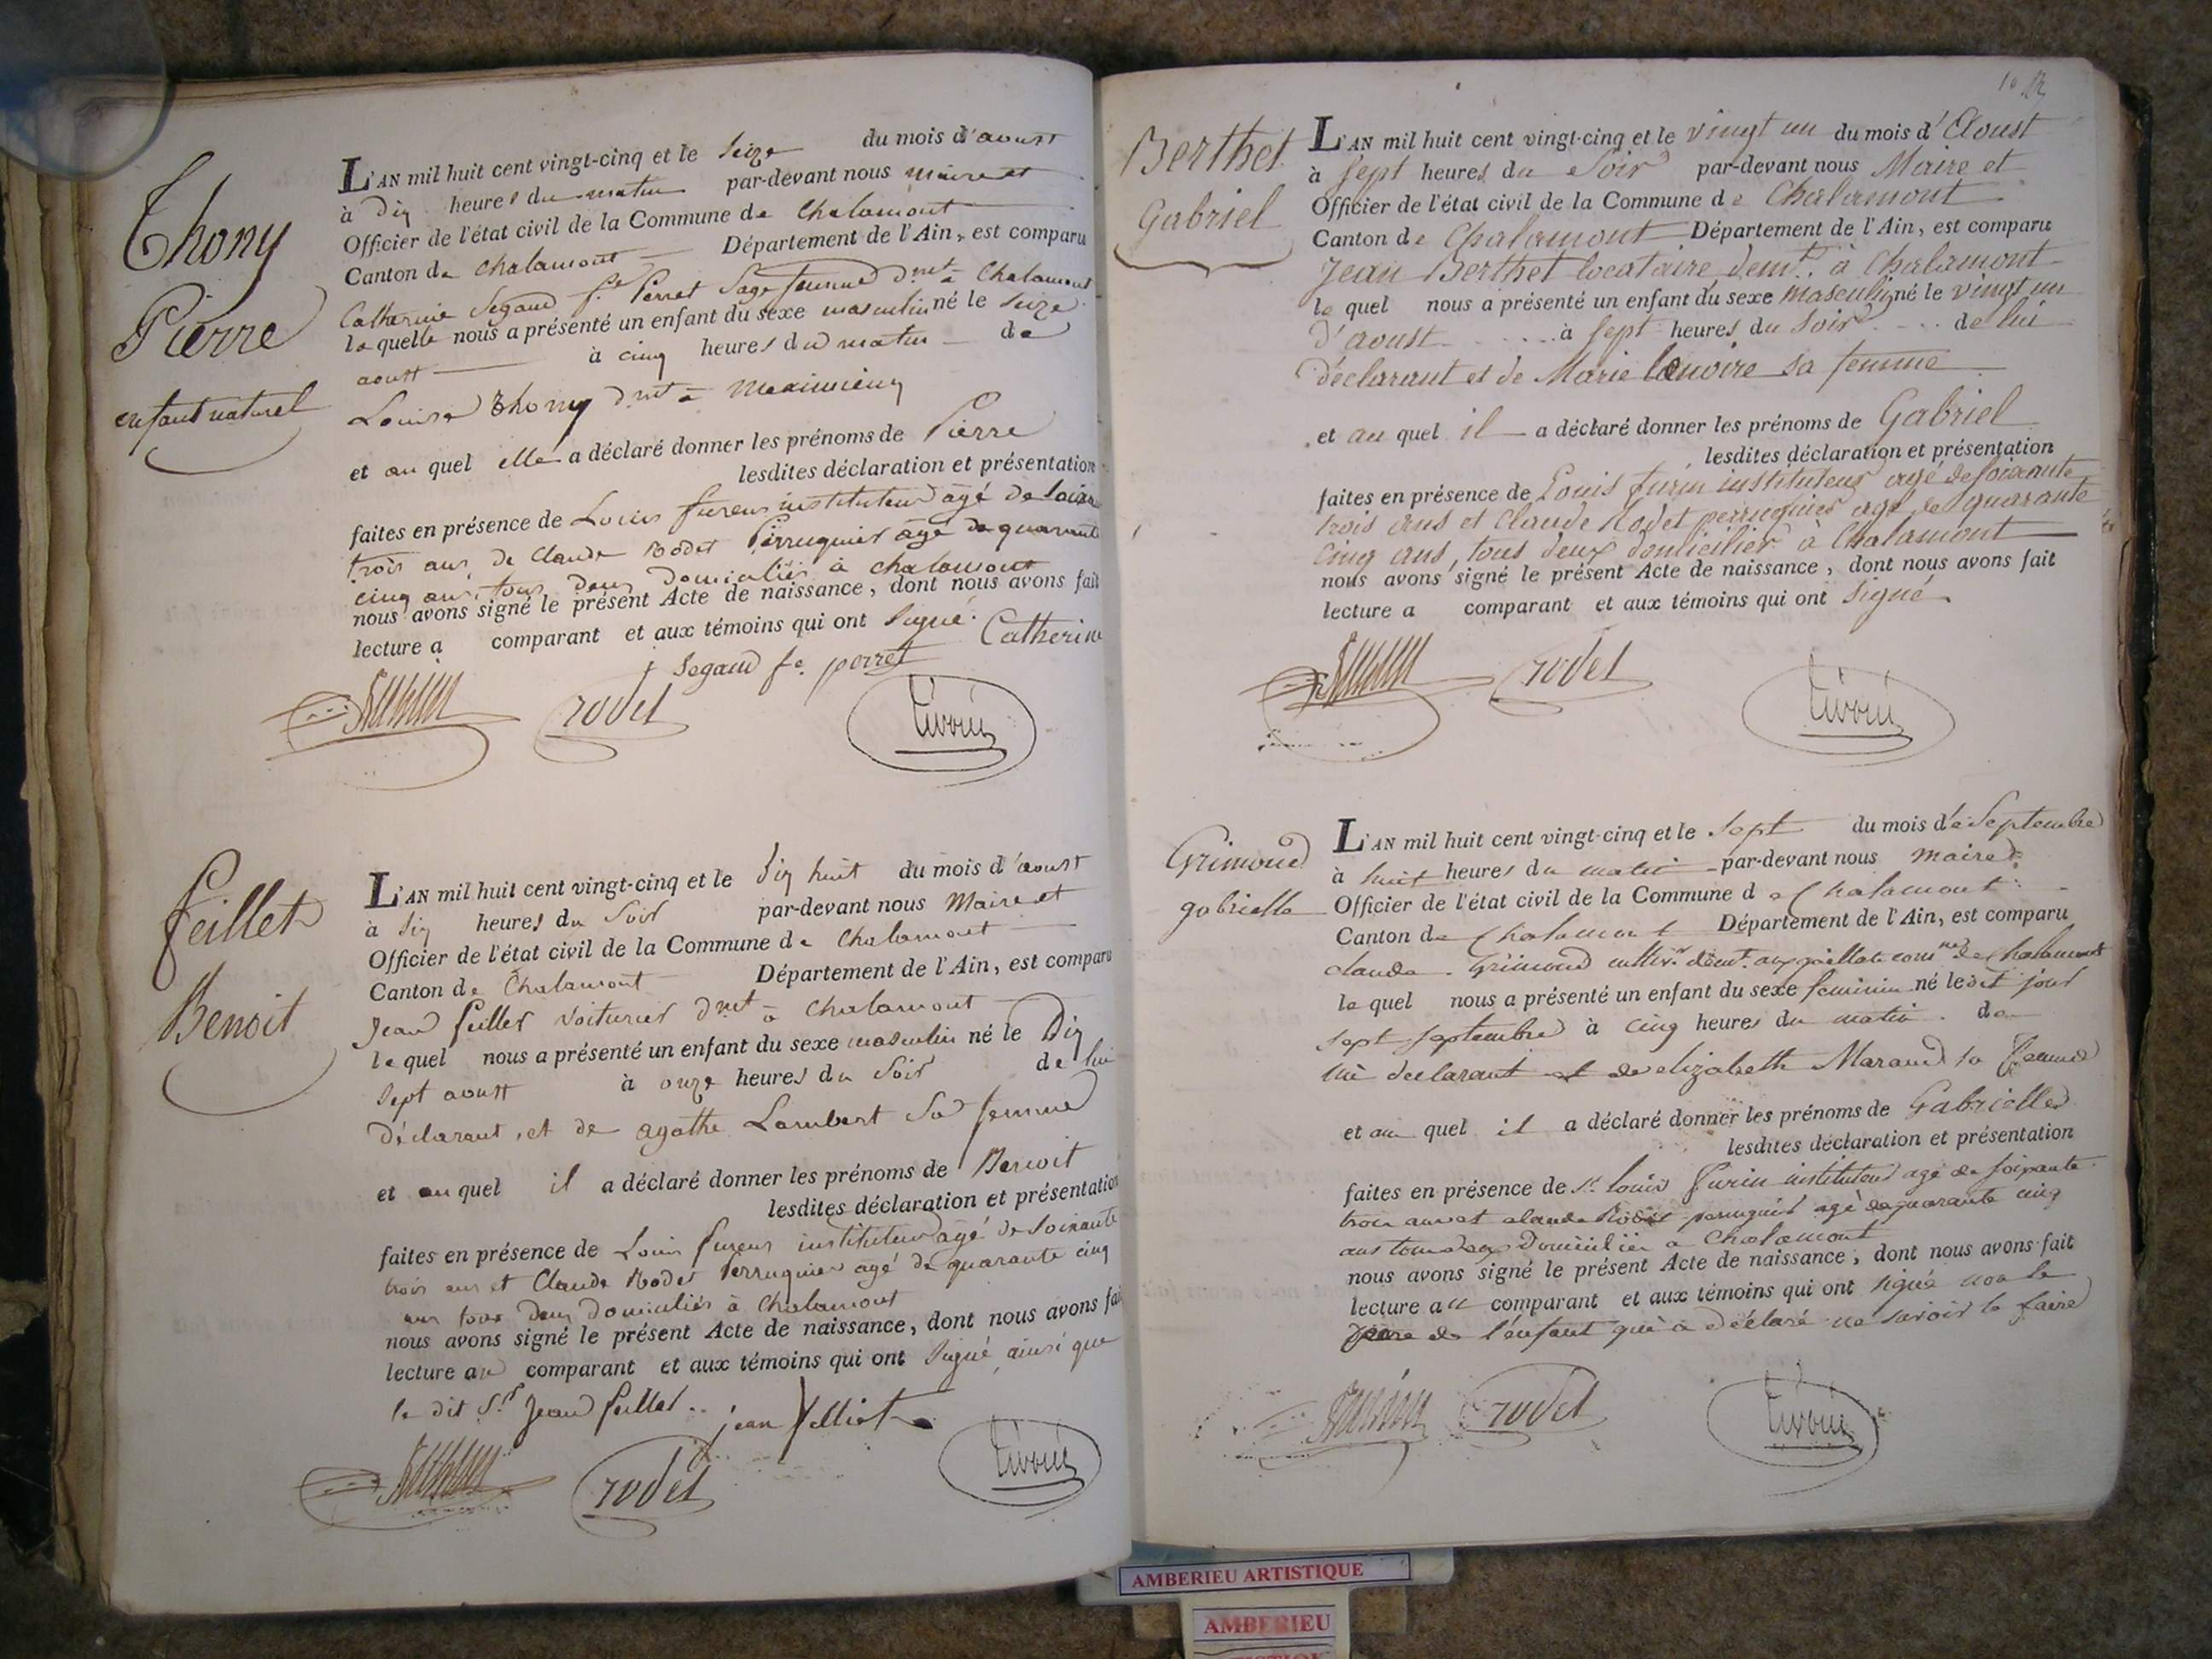 Thony
Pierre
enfant naturel
L'AN mil huit cent vingt-cinq et le seize du mois d'aoust
à dix heures du matin par-devant nous maire et
Officier de l'état civil de la Commune de Chalamont
Canton de Chalamont Département de l'Ain, est comparu
Catherine Segaud fe Perret Sage femme dmt à Chalamont
la quelle nous a présenté un enfant du sexe masculin né le seize
aoust à cinq heures du matin de
Louise Thony dmt à Meximieux
et au quel elle a déclaré donner les prénoms de Pierre
lesdites déclaration et présentation
faites en présence de Louis instituteur âgé de soixante
trois ans, de Claude Rodet Perruquier âgé de quarante
cinq ans, tous deux domiciliés à Chalamont
nous avons signé le présent Acte de naissance, dont nous avons fait
lecture a comparant et aux témoins qui ont signé. Catherine
segaud fe. perret
rodet
Feillet
Benoit
L'AN mil huit cent vingt-cinq et le dix huit du mois d'aoust
à six heures du soir par-devant nous Maire et
Officier de l'état civil de la Commune de Chalamont
Canton de Chalamont Département de l'Ain, est comparu
Jean feillet voiturier dmt à Chalamont
le quel nous a présenté un enfant du sexe masculin né le Dix
sept aoust à onze heures du soir de lui
Déclarant, et de agathe Lambert sa femme
et au quel il a déclaré donner les prénoms de Benoit
lesdites déclaration et présentation
faites en présence de Louis instituteur âgé de soixante
trois ans et Claude Rodet Perruquier âgé de quarante cinq
ans tous deux domiciliés à Chalamont
nous avons signé le présent Acte de naissance, dont nous avons fai
lecture au comparant et aux témoins qui ont signé ainsi que
le dit Sr Jean feillet.. jean
rodet
Berthet
Gabriel
L'AN mil huit cent vingt-cinq et le vingt un du mois d'Aoust
à sept heures du soir par-devant nous Maire et
Officier de l'état civil de la Commune de Chalamont
Canton de Chalamont Département de l'Ain, est comparu
Jean Berthet locataire demt. à Chalamont
le quel nous a présenté un enfant du sexe masculin né le vingt un
d'aoust à sept heures du soir de lui
déclarant et de Marie sa femme
et au quel il a déclaré donner les prénoms de Gabriel
lesdites déclaration et présentation
faites en présence de Louis furin instituteur agé de soixante
trois ans et Claude Rodet perruquier agé de quarante
cinq ans, tous deux domicilier à Chalamont
nous avons signé le présent Acte de naissance, dont nous avons fait
lecture a comparant et aux témoins qui ont signé
rodet
Grimoud
gabrielle
L'AN mil huit cent vingt-cinq et le sept du mois de Septembre
à huit heures du matin par-devant nous maire
Officier de l'état civil de la Commune de Chalamont
Canton de Chalamont Département de l'Ain, est comparu
claude Grimoud demt. de Chalamont
le quel nous a présenté un enfant du sexe feminin né le dit jour
sept septembre à cinq heures du matin de
lui declarant et de elizabeth Maraud sa femme
et au quel il a déclaré donner les prénoms de Gabrielle
lesdites déclaration et présentation
faites en présence de Sr. louis furin instituteur agé de soixante
trois ans et claude Rodet perruquier agé de quarante cinq
ans tous deux Domicilier a Chalamont
nous avons signé le présent Acte de naissance, dont nous avons fait
lecture au comparant et aux témoins qui ont signé non le
père de l'enfant qui a déclaré ne savoir le faire
rodet
AMBERIEU ARTISTIQUE
AMBERIEU